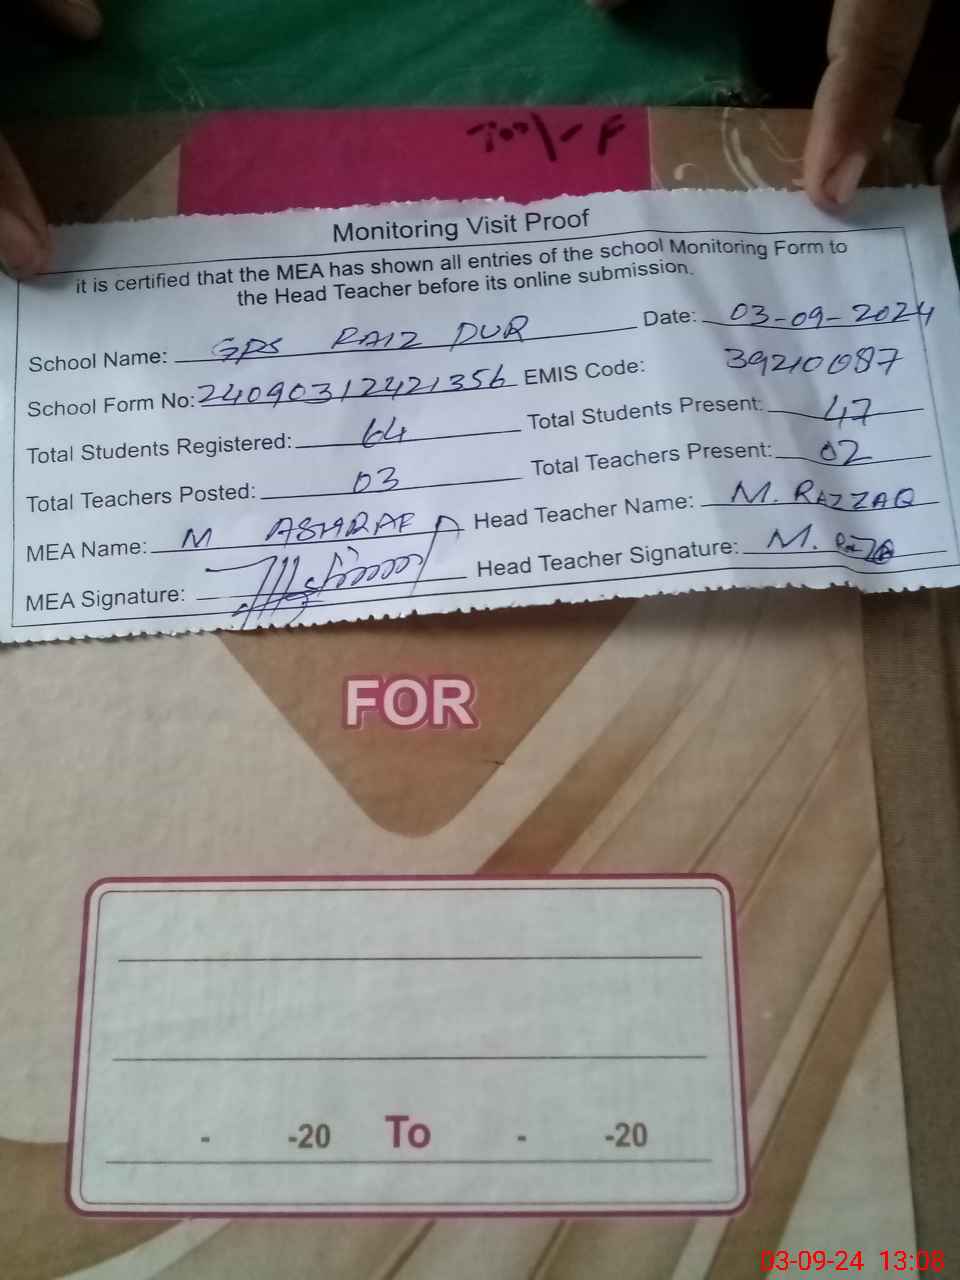 Monitoring Visit Proof
it is certified that the MEA has shown all entries of the school Monitoring Form to
the Head Teacher before its online submission.
School Name: GPS RAIZ PUR Date: 03-09-2024
School Form No: 24090312421356 EMIS Code: 39210087
Total Students Registered: 64 Total Students Present: 47
Total Teachers Posted: 03 Total Teachers Present: 02
MEA Name: M ASHRAF A Head Teacher Name: M. RAZZAQ
MEA Signature: Head Teacher Signature: M.
FOR
- -20 To - -20
03-09-24 13:08